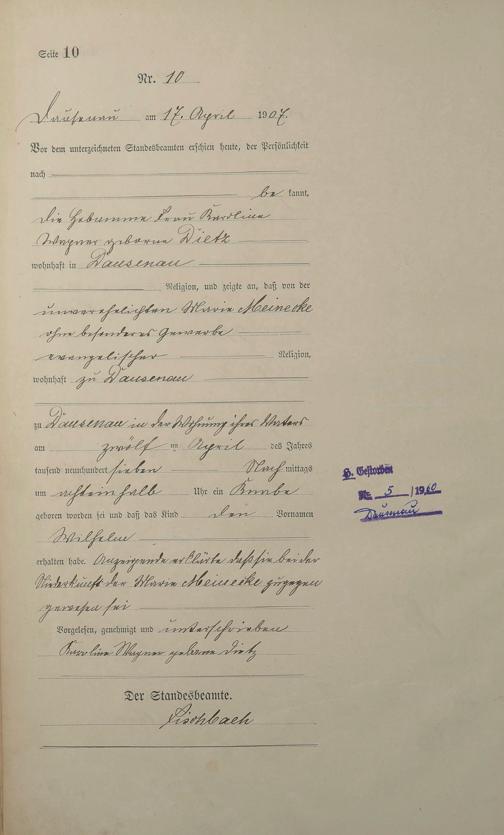 Seite 10
Nr. 10
Dausenau am 17. April 1907.
Vor dem unterzeichneten Standesbeamten erschien heute, der Persönlichkeit
nach
be kannt,
die Hebamme Frau Karoline
Wagner geborne Dietz
wohnhaft in Dausenau
Religion, und zeigte an, daß von der
unverehelichten Marie Meinecke
ohne besonderes Gewerbe
evangelischer Religion,
wohnhaft zu Dausenau
zu Dausenau in der Wohnung ihres Vaters
am zwölf ten April des Jahres
tausend neunhundert sieben Nach mittags
um achteinhalb Uhr ein Knabe
geboren worden sei und daß das Kind den Vornamen
Wilhelm
erhalten habe. Anzeigende erklärte daß sie bei der
Niederkunft der Marie Meinecke zugegen
gewesen sei
Vorgelesen, genehmigt und unterschrieben
Karoline Wagner geborne Dietz
Der Standesbeamte.
Fischbach
Gestorben
Nr. 5 /19